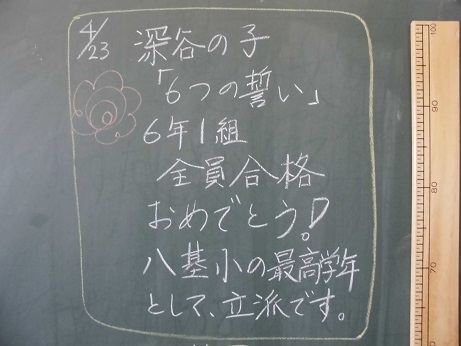 4/23
深谷の子
「6つの誓い」
6年1組
全員合格
おめでとう!
八基小の最高学年
として、立派です。
100
90
80
70